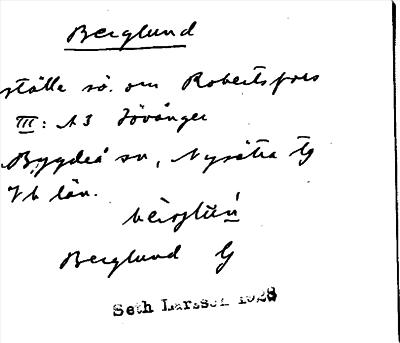 Berglund
ställe sö. om Robertsfors
III: A3 Jövånger
Bygdeå sn, Nysätra tg
Vb län.
Berglund G
Seth Larsson 1928